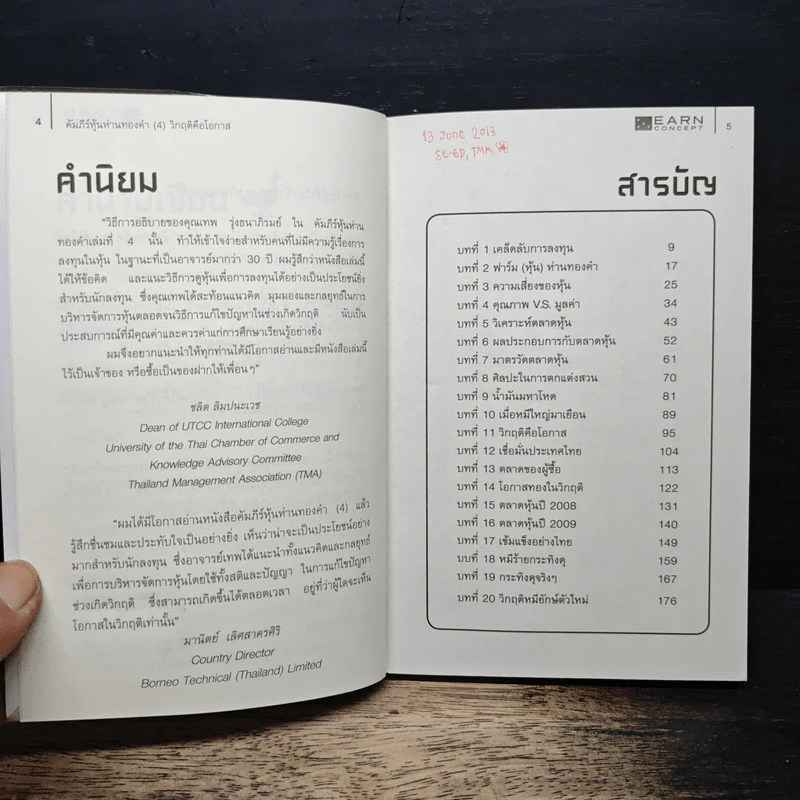 4 คัมภีร์หุ้นห่านทองคำ (4) วิกฤติคือโอกาส
คำนิยม
"วิธีการอธิบายของคุณเทพ รุ่งธนาภิรมย์ ใน คัมภีร์หุ้นห่าน
ทองคำเล่มที่ 4 นั้น ทำให้เข้าใจง่ายสำหรับคนที่ไม่มีความรู้เรื่องการ
ลงทุนในหุ้น ในฐานะที่เป็นอาจารย์มากว่า 30 ปี ผมรู้สึกว่าหนังสือเล่มนี้
ได้ให้ข้อคิด และแนะวิธีการดูหุ้นเพื่อการลงทุนได้อย่างเป็นประโยชน์ยิ่ง
สำหรับนักลงทุน ซึ่งคุณเทพได้สะท้อนแนวคิด มุมมองและกลยุทธ์ในการ
บริหารจัดการหุ้นตลอดจนวิธีการแก้ไขปัญหาในช่วงเกิดวิกฤติ นับเป็น
ประสบการณ์ที่มีคุณค่าและควรค่าแก่การศึกษาเรียนรู้อย่างยิ่ง
ผมจึงอยากแนะนำให้ทุกท่านได้มีโอกาสอ่านและมีหนังสือเล่มนี้
ไว้เป็นเจ้าของ หรือซื้อเป็นของฝากให้เพื่อนๆ"
ชลิต ลิมปนะเวช
Dean of UTCC International College
University of the Thai Chamber of Commerce and
Knowledge Advisory Committee
Thailand Management Association (TMA)
"ผมได้มีโอกาสอ่านหนังสือคัมภีร์หุ้นห่านทองคำ (4) แล้ว
รู้สึกชื่นชมและประทับใจเป็นอย่างยิ่ง เห็นว่าน่าจะเป็นประโยชน์อย่าง
มากสำหรับนักลงทุน ซึ่งอาจารย์เทพได้แนะนำทั้งแนวคิดและกลยุทธ์
เพื่อการบริหารจัดการหุ้นโดยใช้ทั้งสติและปัญญา ในการแก้ไขปัญหา
ช่วงเกิดวิกฤติ ซึ่งสามารถเกิดขึ้นได้ตลอดเวลา อยู่ที่ว่าผู้ใดจะเห็น
โอกาสในวิกฤติเท่านั้น"
มานิตย์ เลิศสาครศิริ
Country Director
Borneo Technical (Thailand) Limited
EARN CONCEPT 5
13 JUNE 2013
SE-ED, TMK
สารบัญ
บทที่ 1 เคล็ดลับการลงทุน 9
บทที่ 2 ฟาร์ม (หุ้น) ห่านทองคำ 17
บทที่ 3 ความเสี่ยงของหุ้น 25
บทที่ 4 คุณภาพ V.S. มูลค่า 34
บทที่ 5 วิเคราะห์ตลาดหุ้น 43
บทที่ 6 ผลประกอบการกับตลาดหุ้น 52
บทที่ 7 มาตรวัดตลาดหุ้น 61
บทที่ 8 ศิลปะในการตกแต่งสวน 70
บทที่ 9 น้ำมันมหาโหด 81
บทที่ 10 เมื่อหมีใหญ่มาเยือน 89
บทที่ 11 วิกฤติคือโอกาส 95
บทที่ 12 เชื่อมั่นประเทศไทย 104
บทที่ 13 ตลาดของผู้ซื้อ 113
บทที่ 14 โอกาสทองในวิกฤติ 122
บทที่ 15 ตลาดหุ้นปี 2008 131
บทที่ 16 ตลาดหุ้นปี 2009 140
บทที่ 17 เข้มแข็งอย่างไทย 149
บบที่ 18 หมีร้ายกระทิงดุ 159
บทที่ 19 กระทิงดุจริงๆ 167
บทที่ 20 วิกฤติหมียักษ์ตัวใหม่ 176